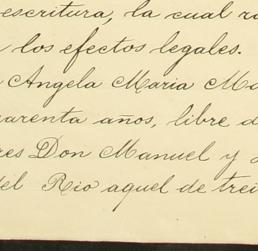 escritura, la cual
los efectos legales.
Angela Maria
arenta años, libre
res Don Manuel y
del Rio aquel de trei